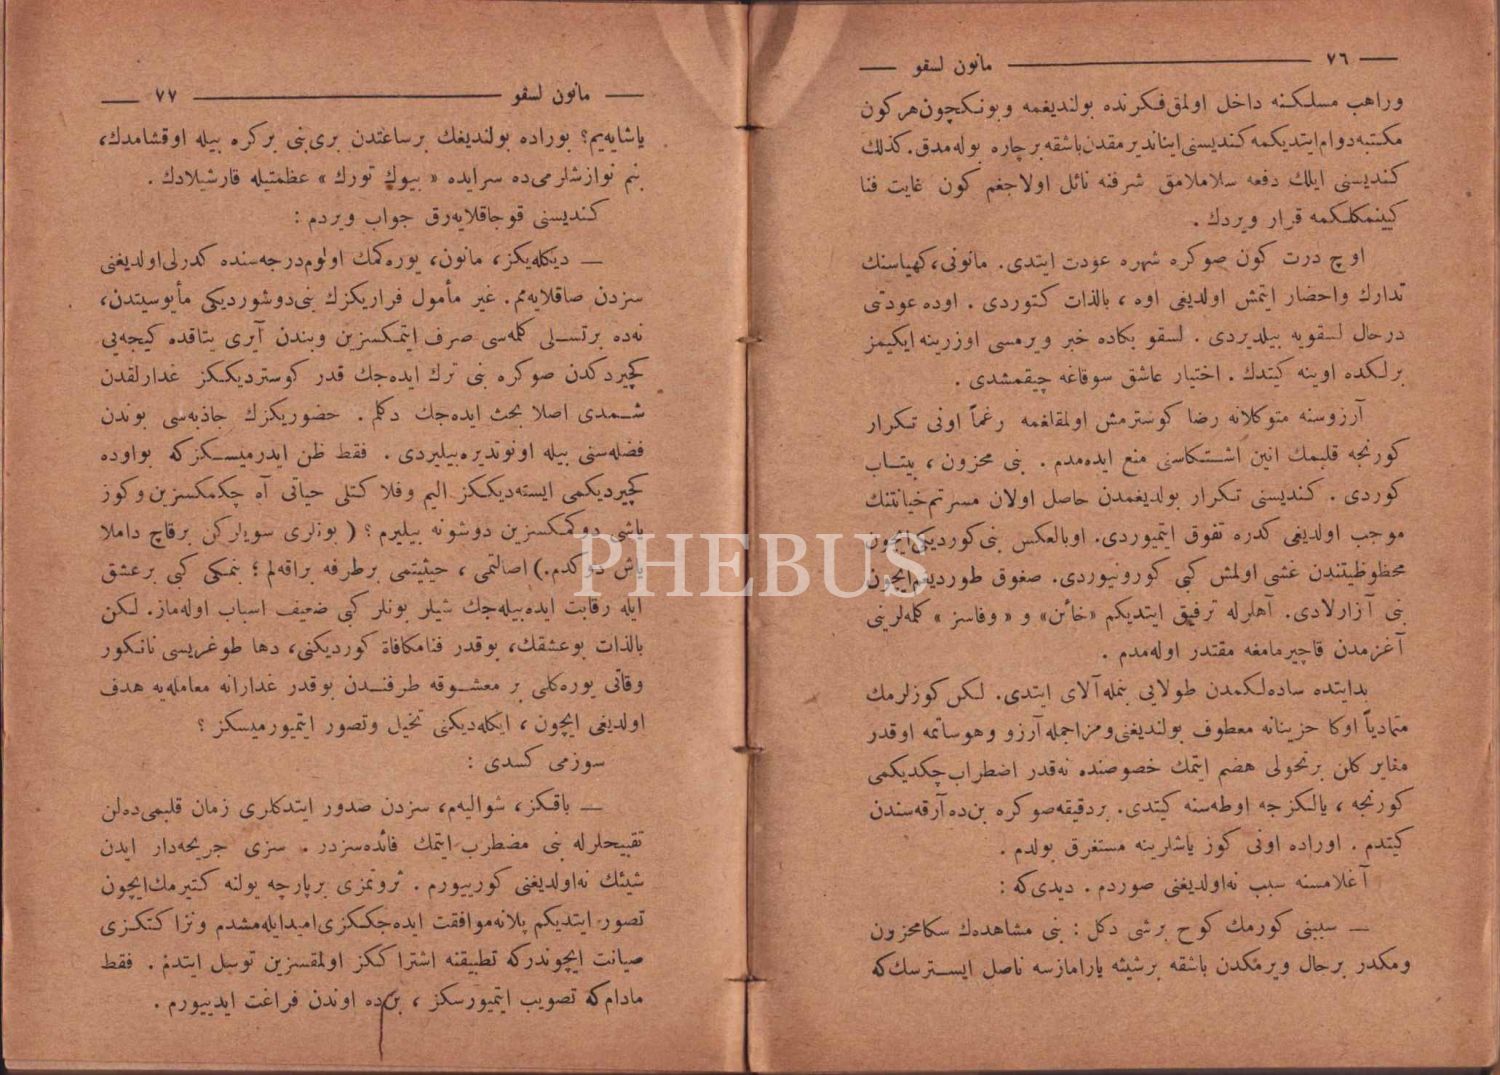 — ٧٦ — مانون لسقو —
وراهب مسلكنه داخل اولمق فكرنده بولنديغمه وبونكچون هركون
مكتبه دوام ايتديكمه كنديسنى ايناندير مقدن باشقه برچاره بوله مدق. كذلك
كنديسنى ايلك دفعه سلاملامق شرفنه نائل اولاجغم كون غايت فنا
كيينمكلكمه قرار ويردك .
اوچ درت كون صوكره شهره عودت ايتدى. مانونى، كهياسنك
تدارك واحضار ايتمش اولديغى اوه ، بالذات كتوردى . اوده عودتى
درحال لسقويه بيلديردى . لسقو بكاده خبر ويرمسى اوزرينه ايكيمز
برلكده اوينه كيتدك . اختيار عاشق سوقاغه چيقمشدى .
آرزوسنه متوكلانه رضا كوسترمش اولمقلغمه رغماً اونى تكرار
كورنجه قلبمك انين اشتكاسنى منع ايده مدم . بنى محزون ، بيتاب
كوردى . كنديسنى تكرار بولديغمدن حاصل اولان مسرتم خيانتنك
موجب اولديغى كدره تفوق ايتميوردى. اوبالعكس بنى كورديكى ايچون
محظوظيتندن غشى اولمش كبى كورونيوردى. صغوق طورديغم ايچون
بنى آزارلادى. آهلرله ترفيق ايتديكم «خائن» و « وفاسز » كلمه لرينى
آغزمدن قاچيرمامغه مقتدر اوله مدم .
بدايتده ساده لكمدن طولايى بنمله آلاى ايتدى. لكن كوزلرمك
متمادياً اوكا حزينانه معطوف بولنديغنى ومزاجمله آرزو وهوساتمه اوقدر
مغاير كلن برتحولى هضم ايتمك خصوصنده نه قدر اضطراب چكديكمى
كورنجه ، يالكزجه اوطه سنه كيتدى. بردقيقه صوكره بن ده آرقه سندن
كيتدم . اوراده اونى كوز ياشلرينه مستغرق بولدم .
آغلامسنه سبب نه اولديغنى صوردم . ديدى كه :
— سببنى كورمك كوج برشى دكل : بنى مشاهده ك سكا محزون
ومكدر برحال ويرمكدن باشقه برشيئه يارامازسه ناصل ايسترسك كه
— مانون لسقو — ٧٧ —
ياشايه يم؟ بوراده بولنديغك برساعتدن برى بنى بركره بيله اوقشامدك،
بنم نوازشلرمى ده سرايده « بيوك تورك » عظمتيله قارشيلادك .
كنديسنى قوجاقلايه رق جواب ويردم :
— ديكله يكز ، مانون، يوره كمك اولوم درجه سنده كدرلى اولديغنى
سزدن صاقلايه مم. غير مأمول فراريكزك بنى دوشورديكى مأيوسيتدن،
نه ده برتسلى كلمه سى صرف ايتمكسزين وبندن آيرى يتاقده كيجه يى
كچيردكدن صوكره بنى ترك ايده جك قدر كوسترديككز غدارلقدن
شمدى اصلا بحث ايده جك دكلم . حضوريكزك جاذبه سى بوندن
فضله سنى بيله اونوتديره بيليردى . فقط ظن ايدرميسكز كه بواوده
كچيرديكمى ايسته ديككز اليم وفلاكتلى حياتى آه چكمكسزين وكوز
ياشى دوكمكسزين دوشونه بيليرم ؟ ( بونلرى سويلركن برقاچ داملا
ياش دوكدم.) اصالتمى ، حيثيتمى برطرفه براقه لم ؛ بنمكى كبى برعشق
ايله رقابت ايده بيله جك شيلر بونلر كبى ضعيف اسباب اوله ماز. لكن
بالذات بوعشقك، بوقدر فنا مكافاة كورديكنى، دها طوغريسى نانكور
وقاتى يوره كلى بر معشوقه طرفندن بوقدر غدارانه معامله يه هدف
اولديغى ايچون ، ايكله ديكنى تخيل وتصور ايتميورميسكز ؟
سوزمى كسدى :
— باقكز ، شواليه م، سزدن صدور ايتدكلرى زمان قلبمى ده لن
تقبيحلرله بنى مضطرب ايتمك فائده سزدر . سزى جريحه دار ايدن
شيئك نه اولديغنى كورييورم . ثروتمزى برپارچه يولنه كتيرمك ايچون
تصور ايتديكم پلانه موافقت ايده جككزى اميد ايله مشدم ونزاكتكزى
صيانت ايچوندركه تطبيقنه اشتراككز اولمقسزين توسل ايتدم . فقط
مادام كه تصويب ايتميورسكز ، بن ده اوندن فراغت ايدييورم .
PHEBUS